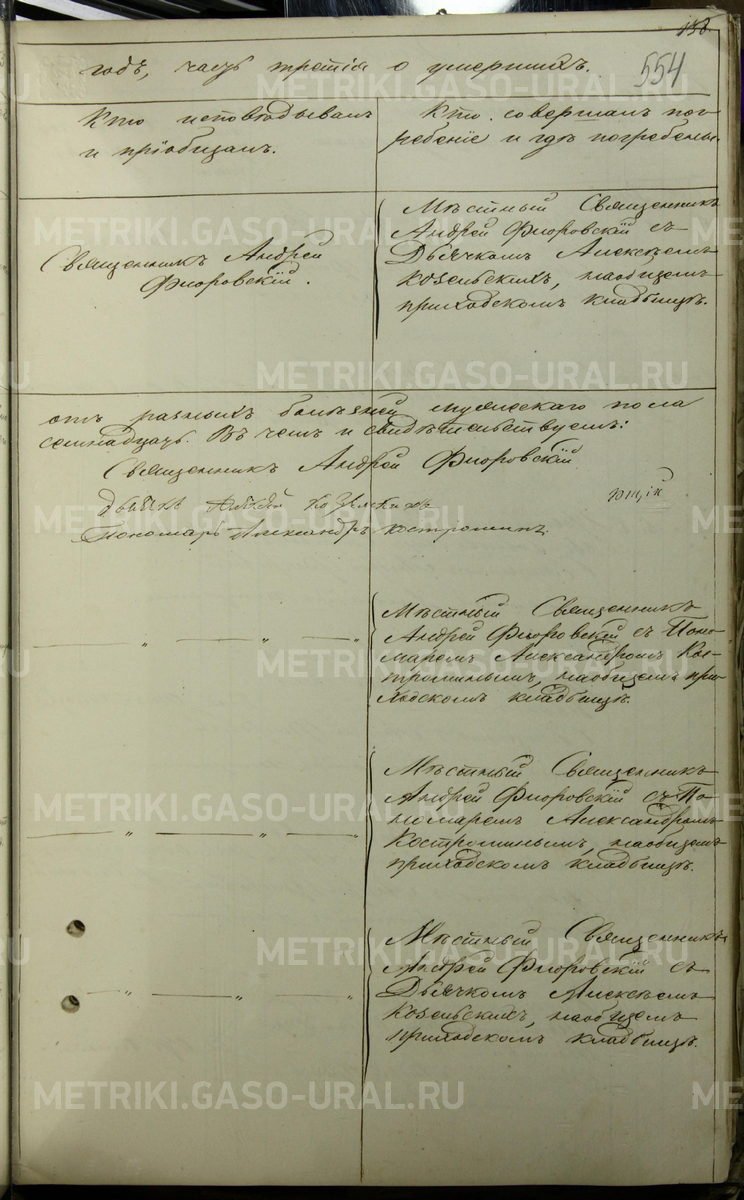 158.
554
годъ, часть третія о умершихъ.
Кто исповѣдывалъ
и пріобщалъ.
Кто совершалъ пог-
ребеніе и гдѣ погребены.
Священникъ Андрей
Флоровскій.
Мѣстный Священникъ
Андрей Флоровскій съ
Дьячкомъ Алексѣемъ
Козельскихъ, на общемъ
приходскомъ кладбищѣ.
отъ разныхъ болѣзней мужескаго пола
семнадцать. Въ чемъ и свидѣтельствуемъ:
Священникъ Андрей Флоровскій
Дьячекъ Алексѣй Козельскихъ
Пономарь Александръ Костроминъ
Мѣстный Священникъ
Андрей Флоровскій съ Поно-
маремъ Александромъ Кос-
троминымъ, на общемъ при-
ходскомъ кладбищѣ.
Мѣстный Священникъ
Андрей Флоровскій съ По-
номаремъ Александромъ
Костроминымъ, на общемъ
приходскомъ кладбищѣ.
Мѣстный Священникъ
Андрей Флоровскій съ
Дьячкомъ Алексѣемъ
Козельскихъ, на общемъ
приходскомъ кладбищѣ.
METRIKI.GASO-URAL.RU